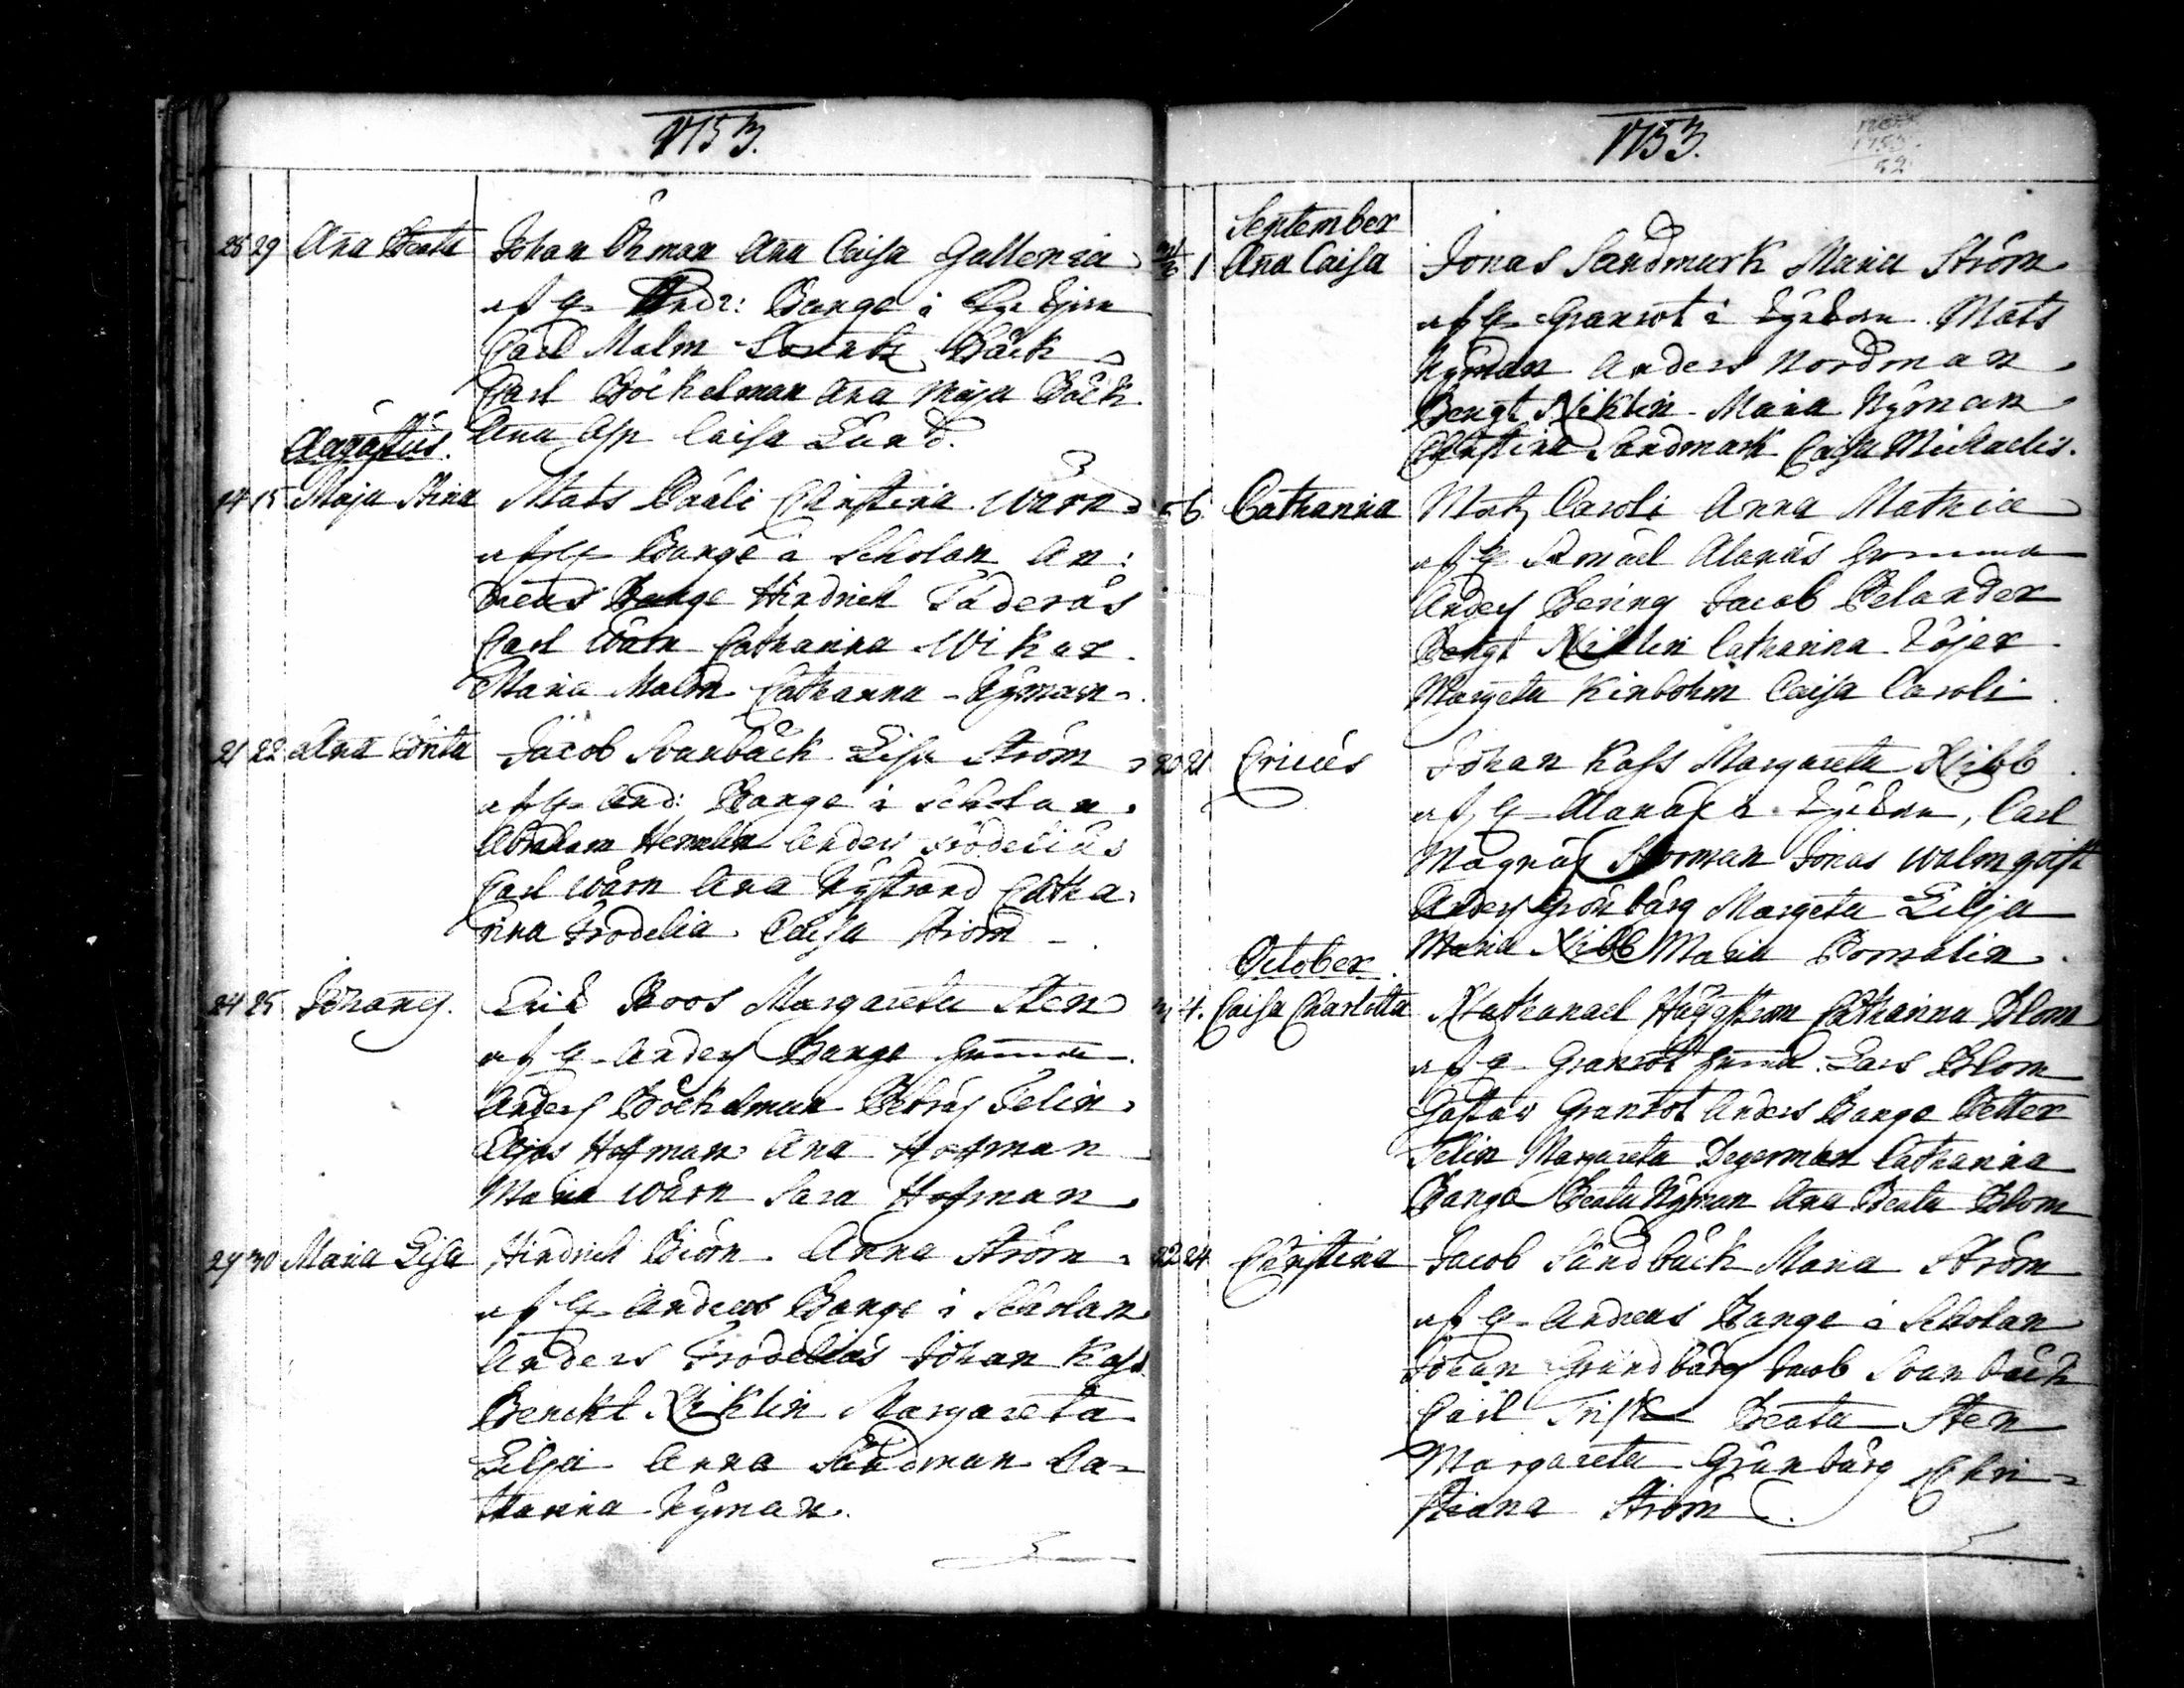 1753.
28 29 Ana Beata Johan Öhman Ana Caisa Gallenia
af G Andr: Bange i
Carl Malm Lorentz Bäck
Carl Böckelman Ana Maja Bäck
Ana Asp Caisa Lund.
Augustus.
14 15 Maja Stina Mats Pauli Christina Wärn
af G Bange i Scholan An:
dreas Bange Hindrich Väderås
Carl Wärn Catharina Wikar
Maria Malm Catharina Nÿman
21 22 Ana Brita Jacob Svanbäck Lisa Ström
af G And: Bange i Scholan
Abraham Hemlin Anders Frodelius
Carl Wärn Ana Nÿstrand Catha
rina Frodelia Caisa Ström
24 25 Johanes. Erik Boos Margareta Sten
af G Anders Bange hemma
Anders Böckelman Petrus Telin
Elias Hofman Ana Hofman
Maria Wärn Sara Hofman
29 30 Maria Lisa Hindrich Biörn Anna Ström
af G Andreas Bange i Scholan
Anders Frodelius Johan Kass
Benckt Niklin Margareta
Lilja Anna Sandman Ca-
tharina Nÿman.
1753.
1753
52
September
1 Ana Caisa Jonas Sandmark Maria Ström
af G Granrot i Mats
Nÿman Anders Nordman
Bengt Niklin Maria Nÿman
Christina Sandmark Caisa Michaelis.
6 Catharina Matz Caroli Anna Mathiæ
af G Samuel Alanus hemma
Anders Bering Jacob Pelander
Bengt Niklin Catharina Höjer
Margeta Kinbohm Caisa Caroli
20 21 Ericus Johan Kass Margareta Nibb
af G Alanus i, Carl
Magnus Norman Jonas Walmqvist
Anders Grönbärg Margeta Lilja
Maria Nibb Maria Pomalin
October
3 4. Caisa Charlotta Nathanael Häggström Catharina Blom
af G Granrot hemma Lars Blom
Gustav Granrot Anders Bange Petter
Telin Margareta Degerman Catharina
Bange Beata Nÿman Ana Beata Blom
22 24 Christina Jacob Sundbäck Maria Ström
af G Andreas Bange i Scholan
Johan Grundbärg Jacob Svanbäck
Carl Trisk Beata Sten
Margareta Grünbärg Chri-
stiana Ström